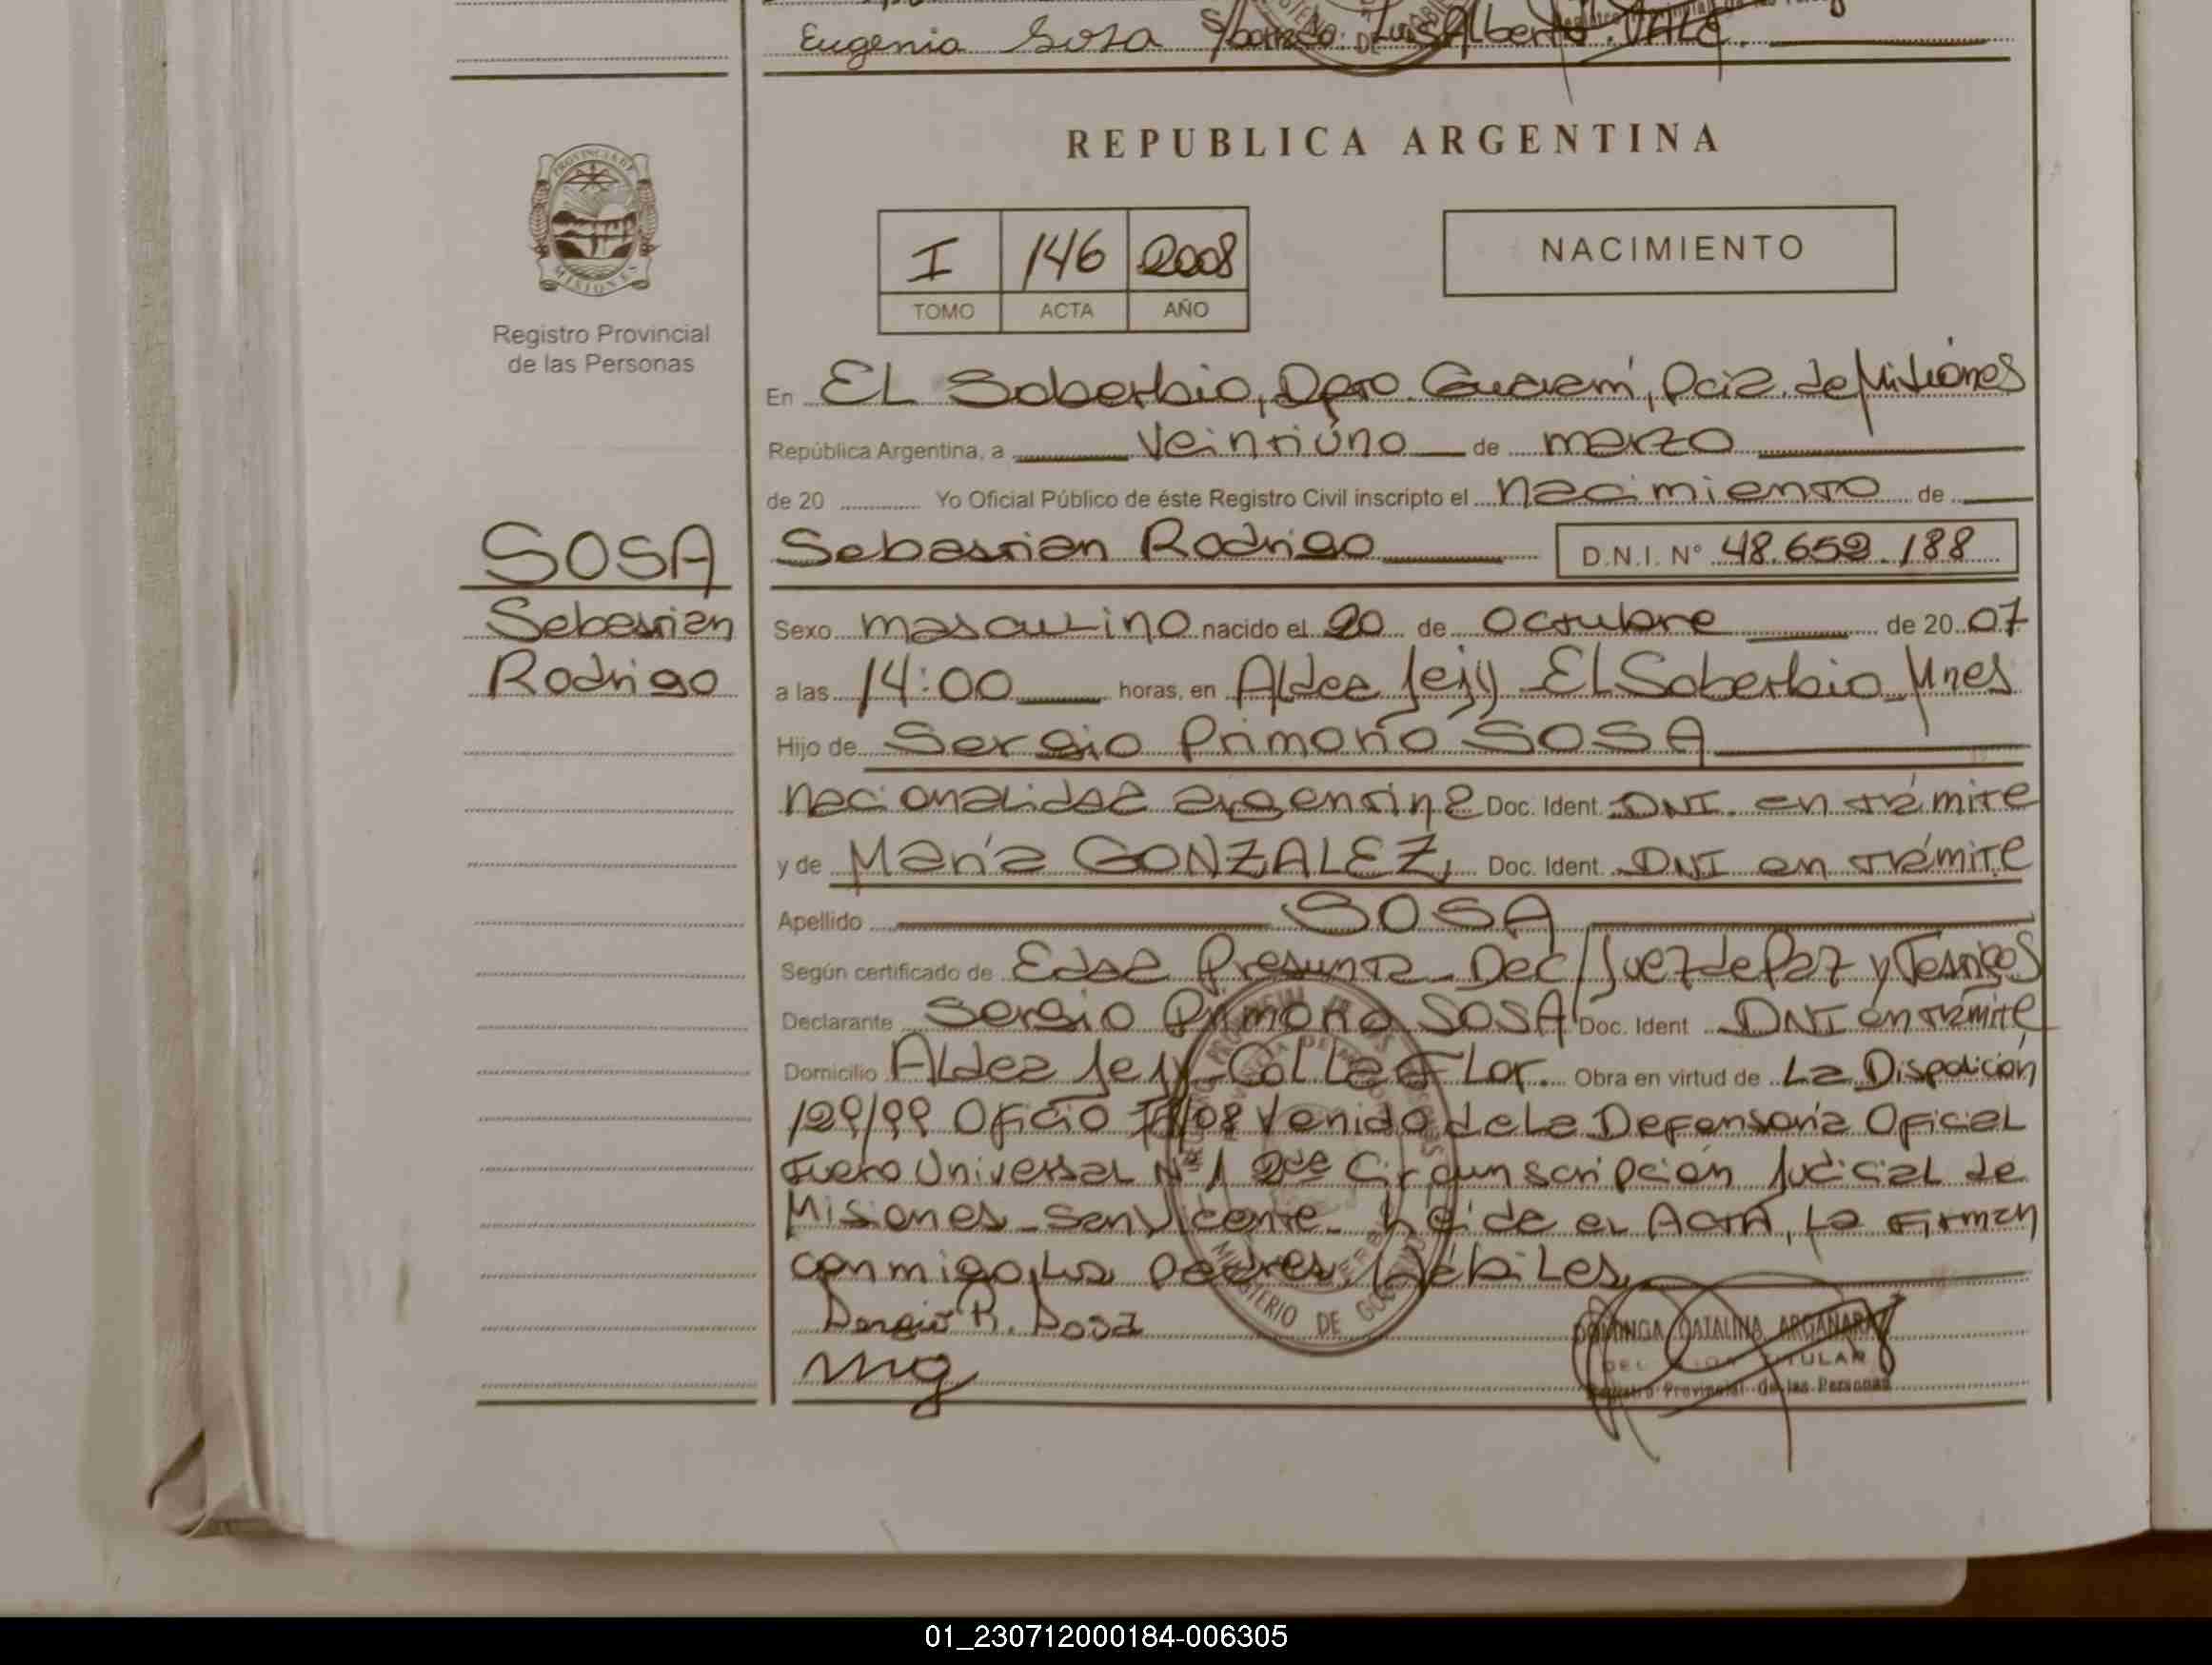 Eugenia Sosa Luis Alberto
REPUBLICA ARGENTINA
PROVINCIA DE
MISIONES
Registro Provincial
de las Personas
I 146 2008
TOMO ACTA AÑO
NACIMIENTO
En EL Soberbio, Dpto. Guaraní, Pcia. de Misiones
República Argentina, a veintiúno de marzo
de 20 Yo Oficial Público de éste Registro Civil inscripto el nacimiento de
SOSA
Sebastian
Rodrigo
Sebastian Rodrigo D.N.I. N° 48.652.188
Sexo masculino nacido el 20 de Octubre de 20 07
a las 14:00 horas, en Aldea Jejy El Soberbio Mnes
Hijo de Sergio SOSA
nacionalidad argentina Doc. Ident. DNI. en trámite
y de María GONZALEZ, Doc. Ident. DNI en trámite
Apellido SOSA
Según certificado de Edad Presunta - Dec/ Juez de Paz y Testigos
Declarante Sergio SOSA Doc. Ident DNI en trámite
Domicilio Aldea Jejy - Flor. Obra en virtud de La Disposición
Oficio venido de La Defensoría Oficial
Fuero Universal N° 1 2da Circunscripción Judicial de
Misiones - San Vicente - Leída el Acta, La Firman
conmigo, Los Padres, hábiles,
Sergio R. Sosa
mg
MINISTERIO DE
DOMINGA CATALINA ARGAÑARAZ
TITULAR
Registro Provincial de las Personas
01_230712000184-006305